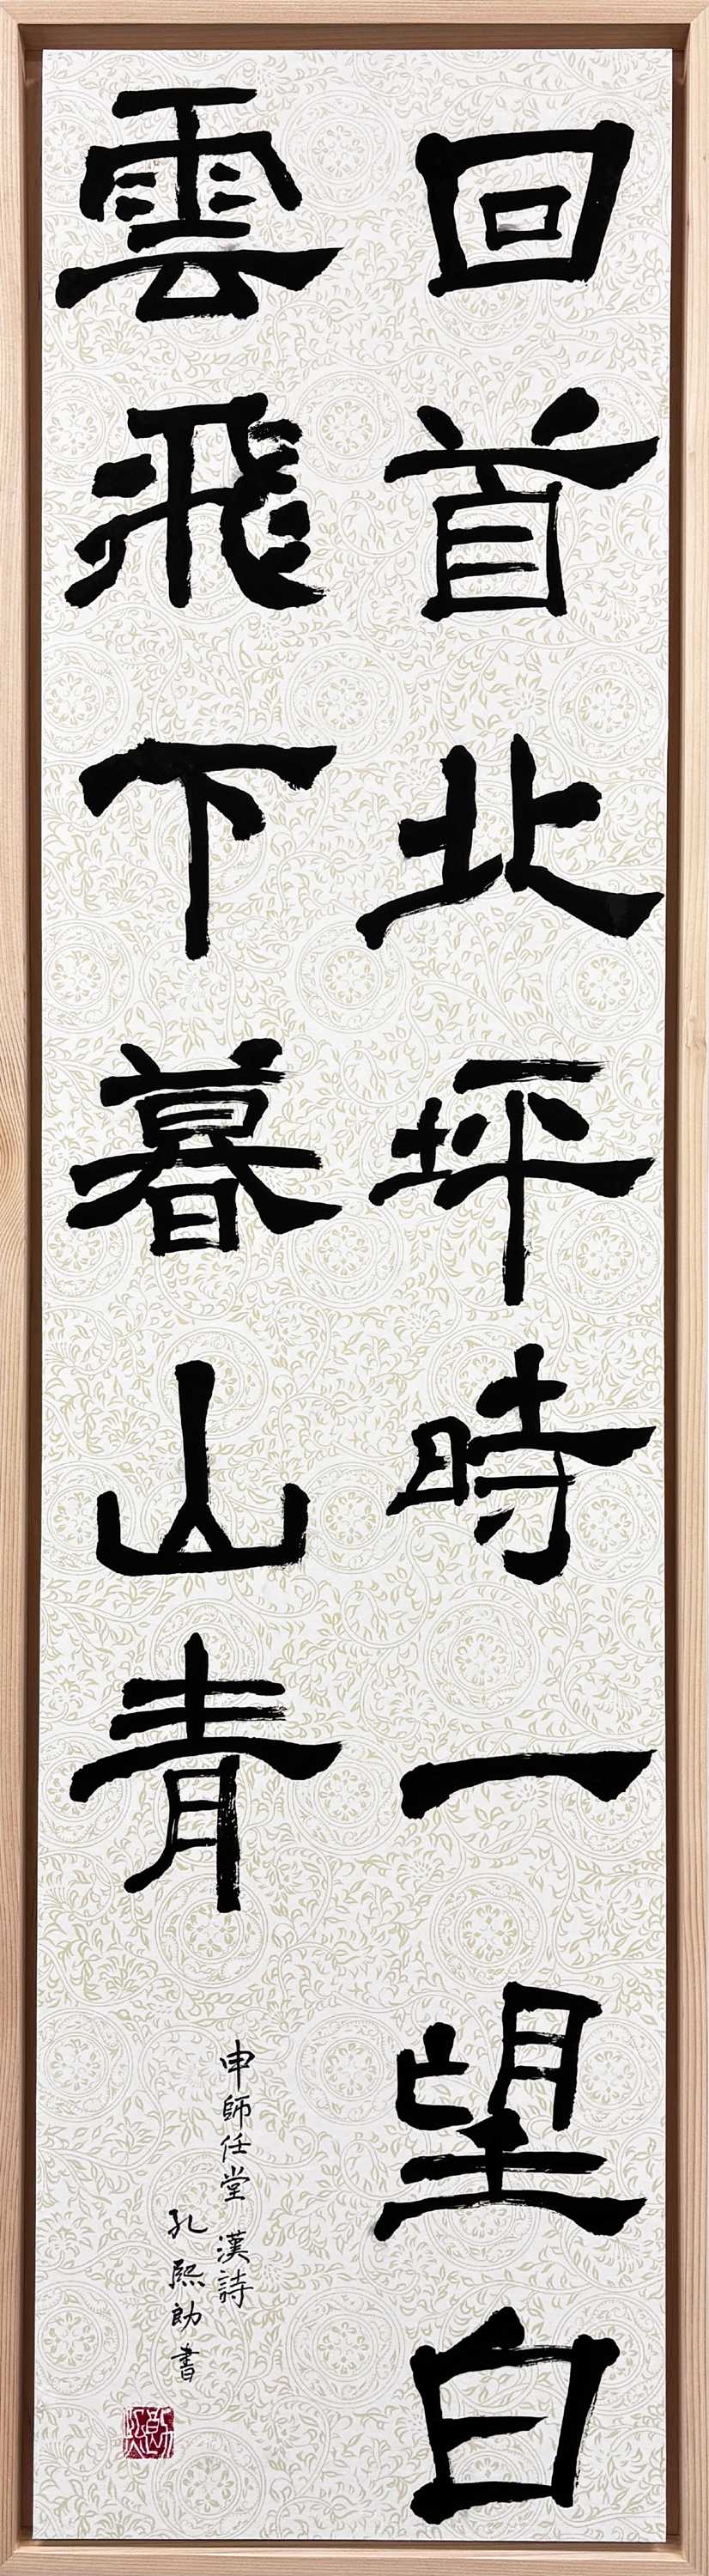 回首北坪時一望白
雲飛下暮山青
申師任堂 漢詩
孔熙 書